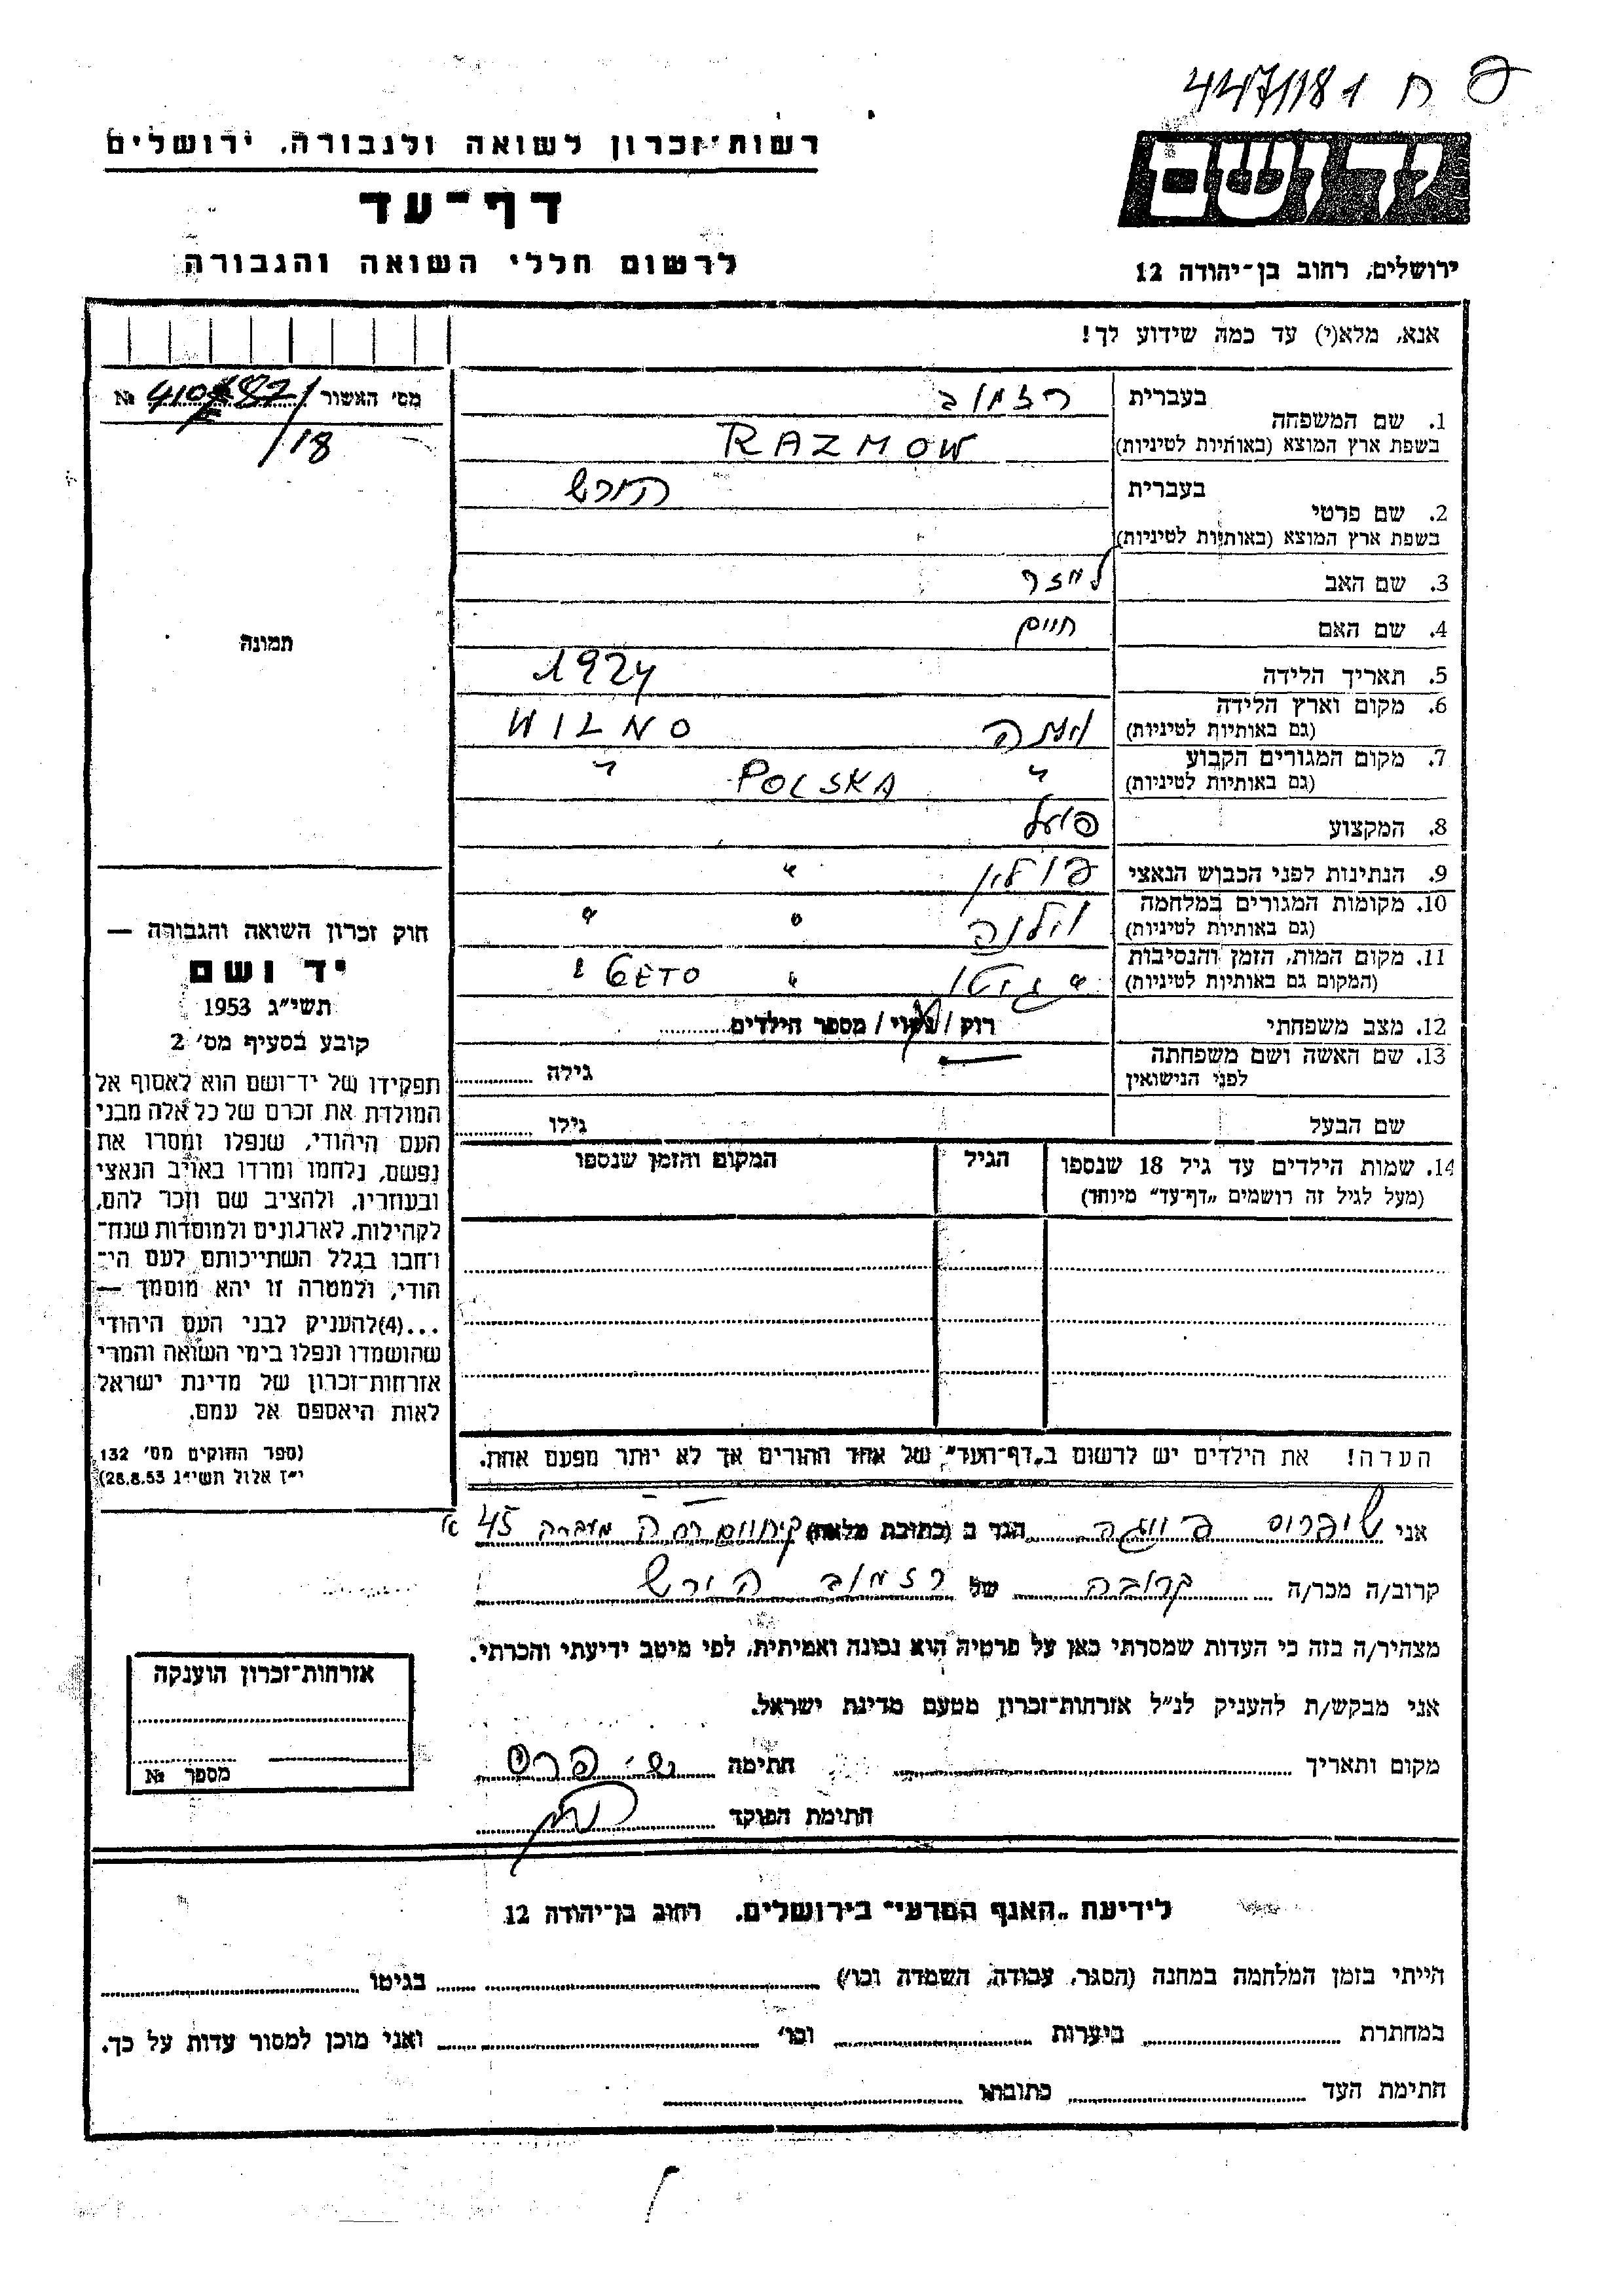 פ ח 447/181
רשות־זכרון לשואה ולגבורה, ירושלים
דף־עד
לרשום חללי השואה והגבורה
יד ושם
ירושלים, רחוב בן־יהודה 12
אנא, מלא(י) עד כמה שידוע לך!
מס׳ האשור
№
/18
1. שם המשפחה בעברית רזמוב
בשפת ארץ המוצא (באותיות לטיניות) RAZMOW
2. שם פרטי בעברית הירש
בשפת ארץ המוצא (באותיות לטיניות)
3. שם האב לייזר
4. שם האם
5. תאריך הלידה 1924
6. מקום וארץ הלידה (גם באותיות לטיניות) וילנה WILNO
7. מקום המגורים הקבוע (גם באותיות לטיניות) " POLSKA "
8. המקצוע פועל
9. הנתינות לפני הכבוש הנאצי פולין "
10. מקומות המגורים במלחמה (גם באותיות לטיניות) וילנה " "
11. מקום המות, הזמן והנסיבות (המקום גם באותיות לטיניות) " גיטו " GETO "
12. מצב משפחתי רוק / נשוי / מספר הילדים
13. שם האשה ושם משפחתה לפני הנישואין גילה
שם הבעל גילו
14. שמות הילדים עד גיל 18 שנספו הגיל המקום והזמן שנספו
(מעל לגיל זה רושמים „דף־עד" מיוחד)
הערה! את הילדים יש לרשום ב„דף־העד" של אחד ההורים אך לא יותר מפעם אחת.
תמונה
חוק זכרון השואה והגבורה —
יד ושם
תשי״ג 1953
קובע בסעיף מס׳ 2
תפקידו של יד־ושם הוא לאסוף אל
המולדת את זכרם של כל אלה מבני
העם היהודי, שנפלו ומסרו את
נפשם, נלחמו ומרדו באויב הנאצי
ובעוזריו, ולהציב שם וזכר להם,
לקהילות, לארגונים ולמוסדות שנח־
רחבו בגלל השתייכותם לעם הי־
הודי, ולמטרה זו יהא מוסמך —
...(4)להעניק לבני העם היהודי
שהושמדו ונפלו בימי השואה והמרי
אזרחות־זכרון של מדינת ישראל
לאות היאספם אל עמם.
(ספר החוקים מס׳ 132
י״ז אלול תשי״ג 28.8.53)
אני שיפריס הגר ב (כתובת מלאה) 45
קרוב/ה מכר/ה קרובה של רזמוב הירש
מצהיר/ה בזה כי העדות שמסרתי כאן על פרטיה הוא נכונה ואמיתית, לפי מיטב ידיעתי והכרתי.
אני מבקש/ת להעניק לנ״ל אזרחות־זכרון מטעם מדינת ישראל.
מקום ותאריך חתימה
חתימת הפוקד
אזרחות־זכרון הוענקה
מספר №
לידיעת „האגף המדעי" בירושלים, רחוב בן־יהודה 12
הייתי בזמן המלחמה במחנה (הסגר, עבודה, השמדה וכו׳) בגיטו
במחתרת ביערות וכו׳ ואני מוכן למסור עדות על כך.
חתימת העד כתובתו